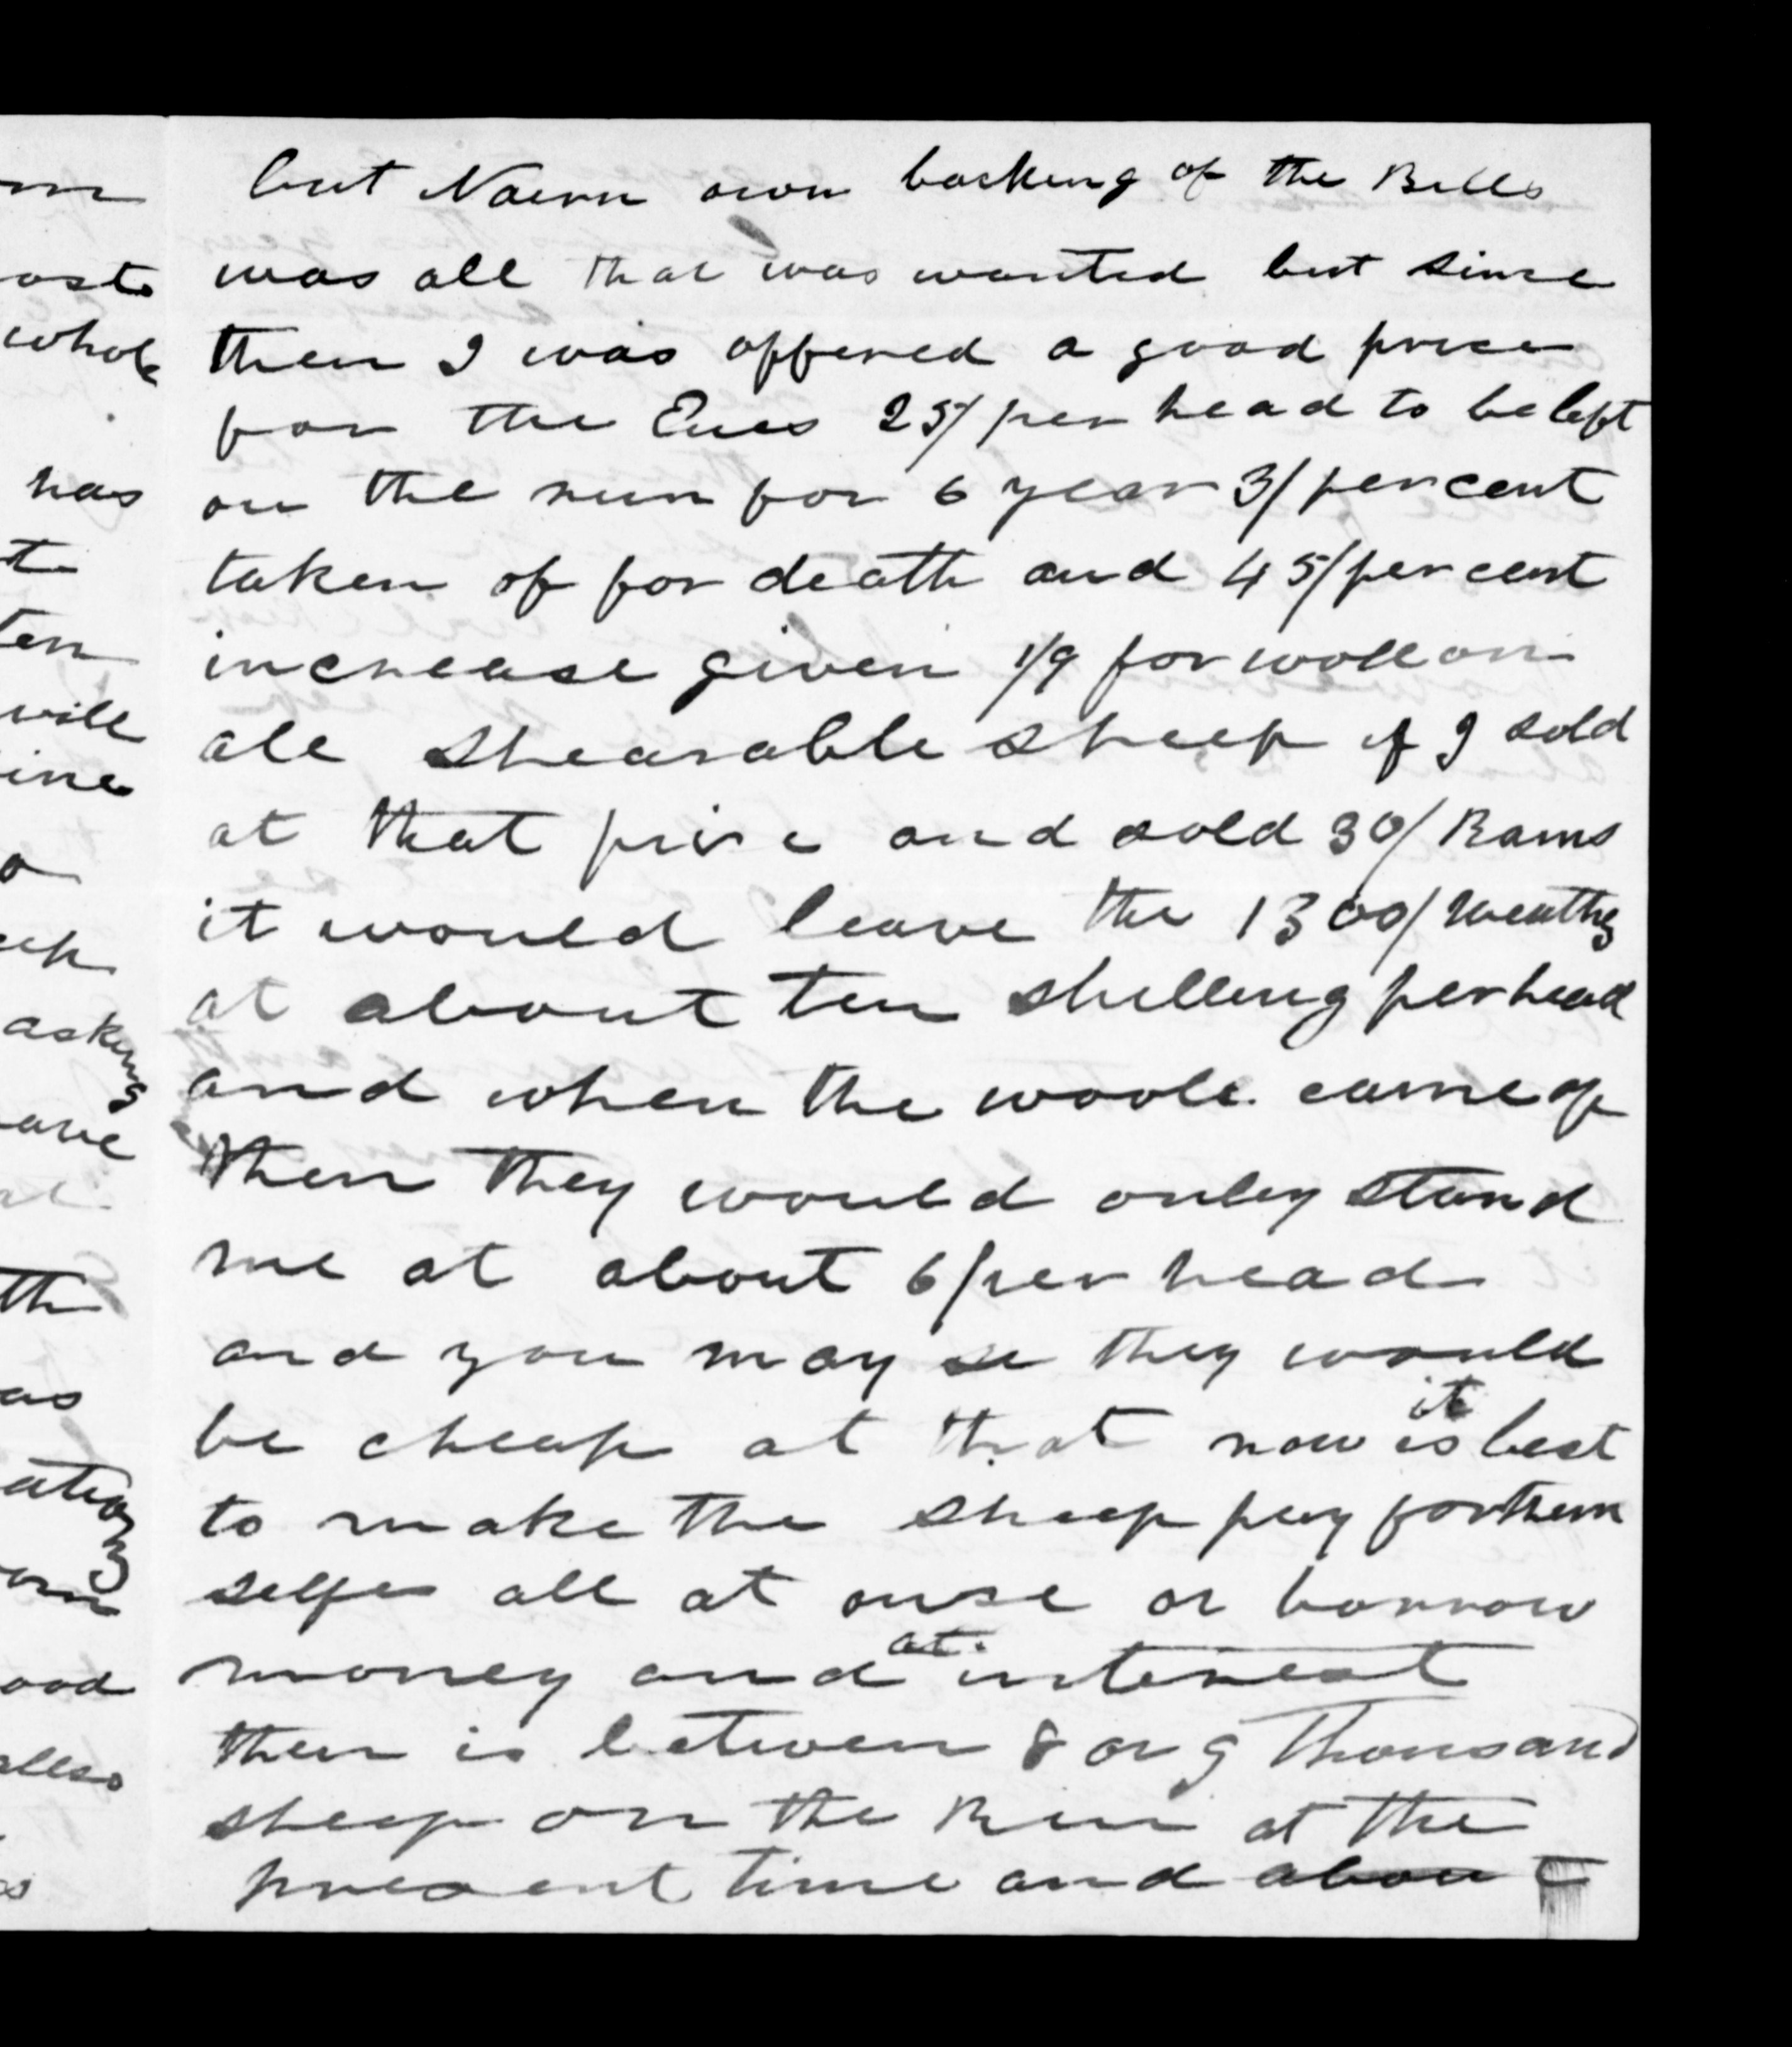 but Nairn own backing of the Bills
was all that was wanted but since
then I was offered a good price
for the Ewes 25/ per head to be left
on the run for 6 year 3/ per cent
taken of for death and 45/ per cent
increase given 1/9 for wool on
all shearable sheep if I sold
at that price and sold 30/ Rams
it would leave the 1300/ Weathers
at about ten shilling per head
and when the woole came of
then they would only stand
me at about 6/ per head
and you may se they would
be cheap at that now it is best
to make the sheep pay for them
selfes all at onse or borrow
money and at interest
ther is between 8 or 9 Thousand
sheep on the Run at the
present time and about